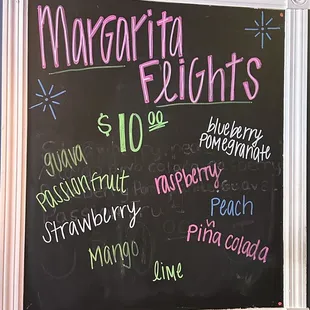 Margarita
Flights
$10.00
blueberry
pomegranate
guava
passionfruit
raspberry
strawberry
Peach
Mango
Piña colada
lime